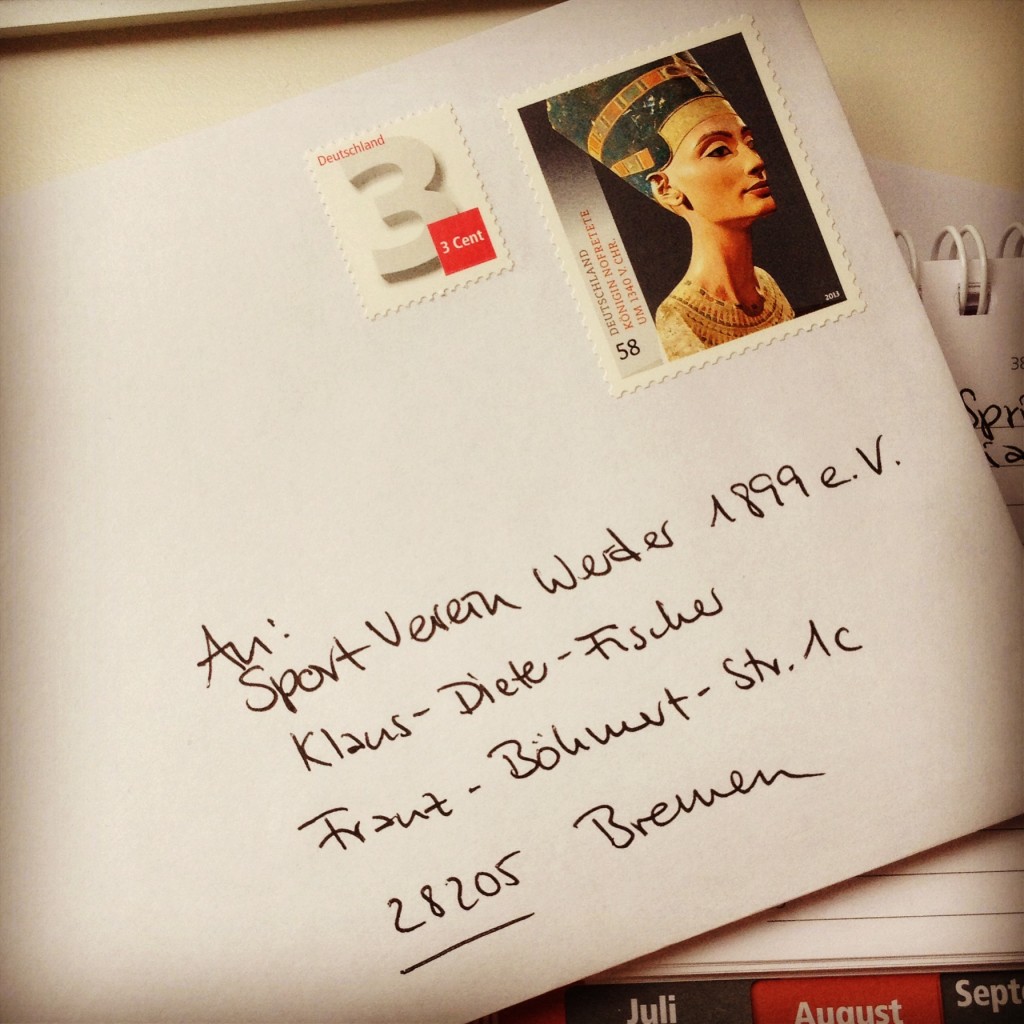 Deutschland
3
3 Cent
DEUTSCHLAND
KÖNIGIN NOFRETETE
UM 1340 V. CHR.
58
2013
An:
Sport Verein Werder 1899 e.V.
Klaus-Dieter-Fischer
Franz-Böhmert-Str. 1c
28205 Bremen
38
Spri
ia
Juli
August
Septe